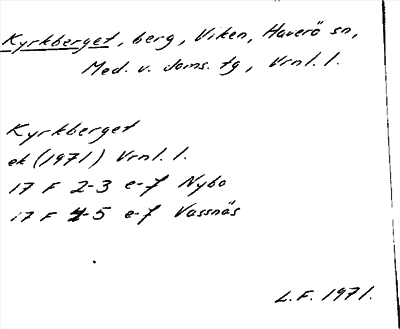 Kyrkberget, berg, Viken, Haverö sn,
Med. v. doms. tg, Vrnl. l.
Kyrkberget
ek (1971) Vrnl. l.
17 F 2-3 e-f Nybo
17 F 4-5 e-f Vassnäs
L.F. 1971.